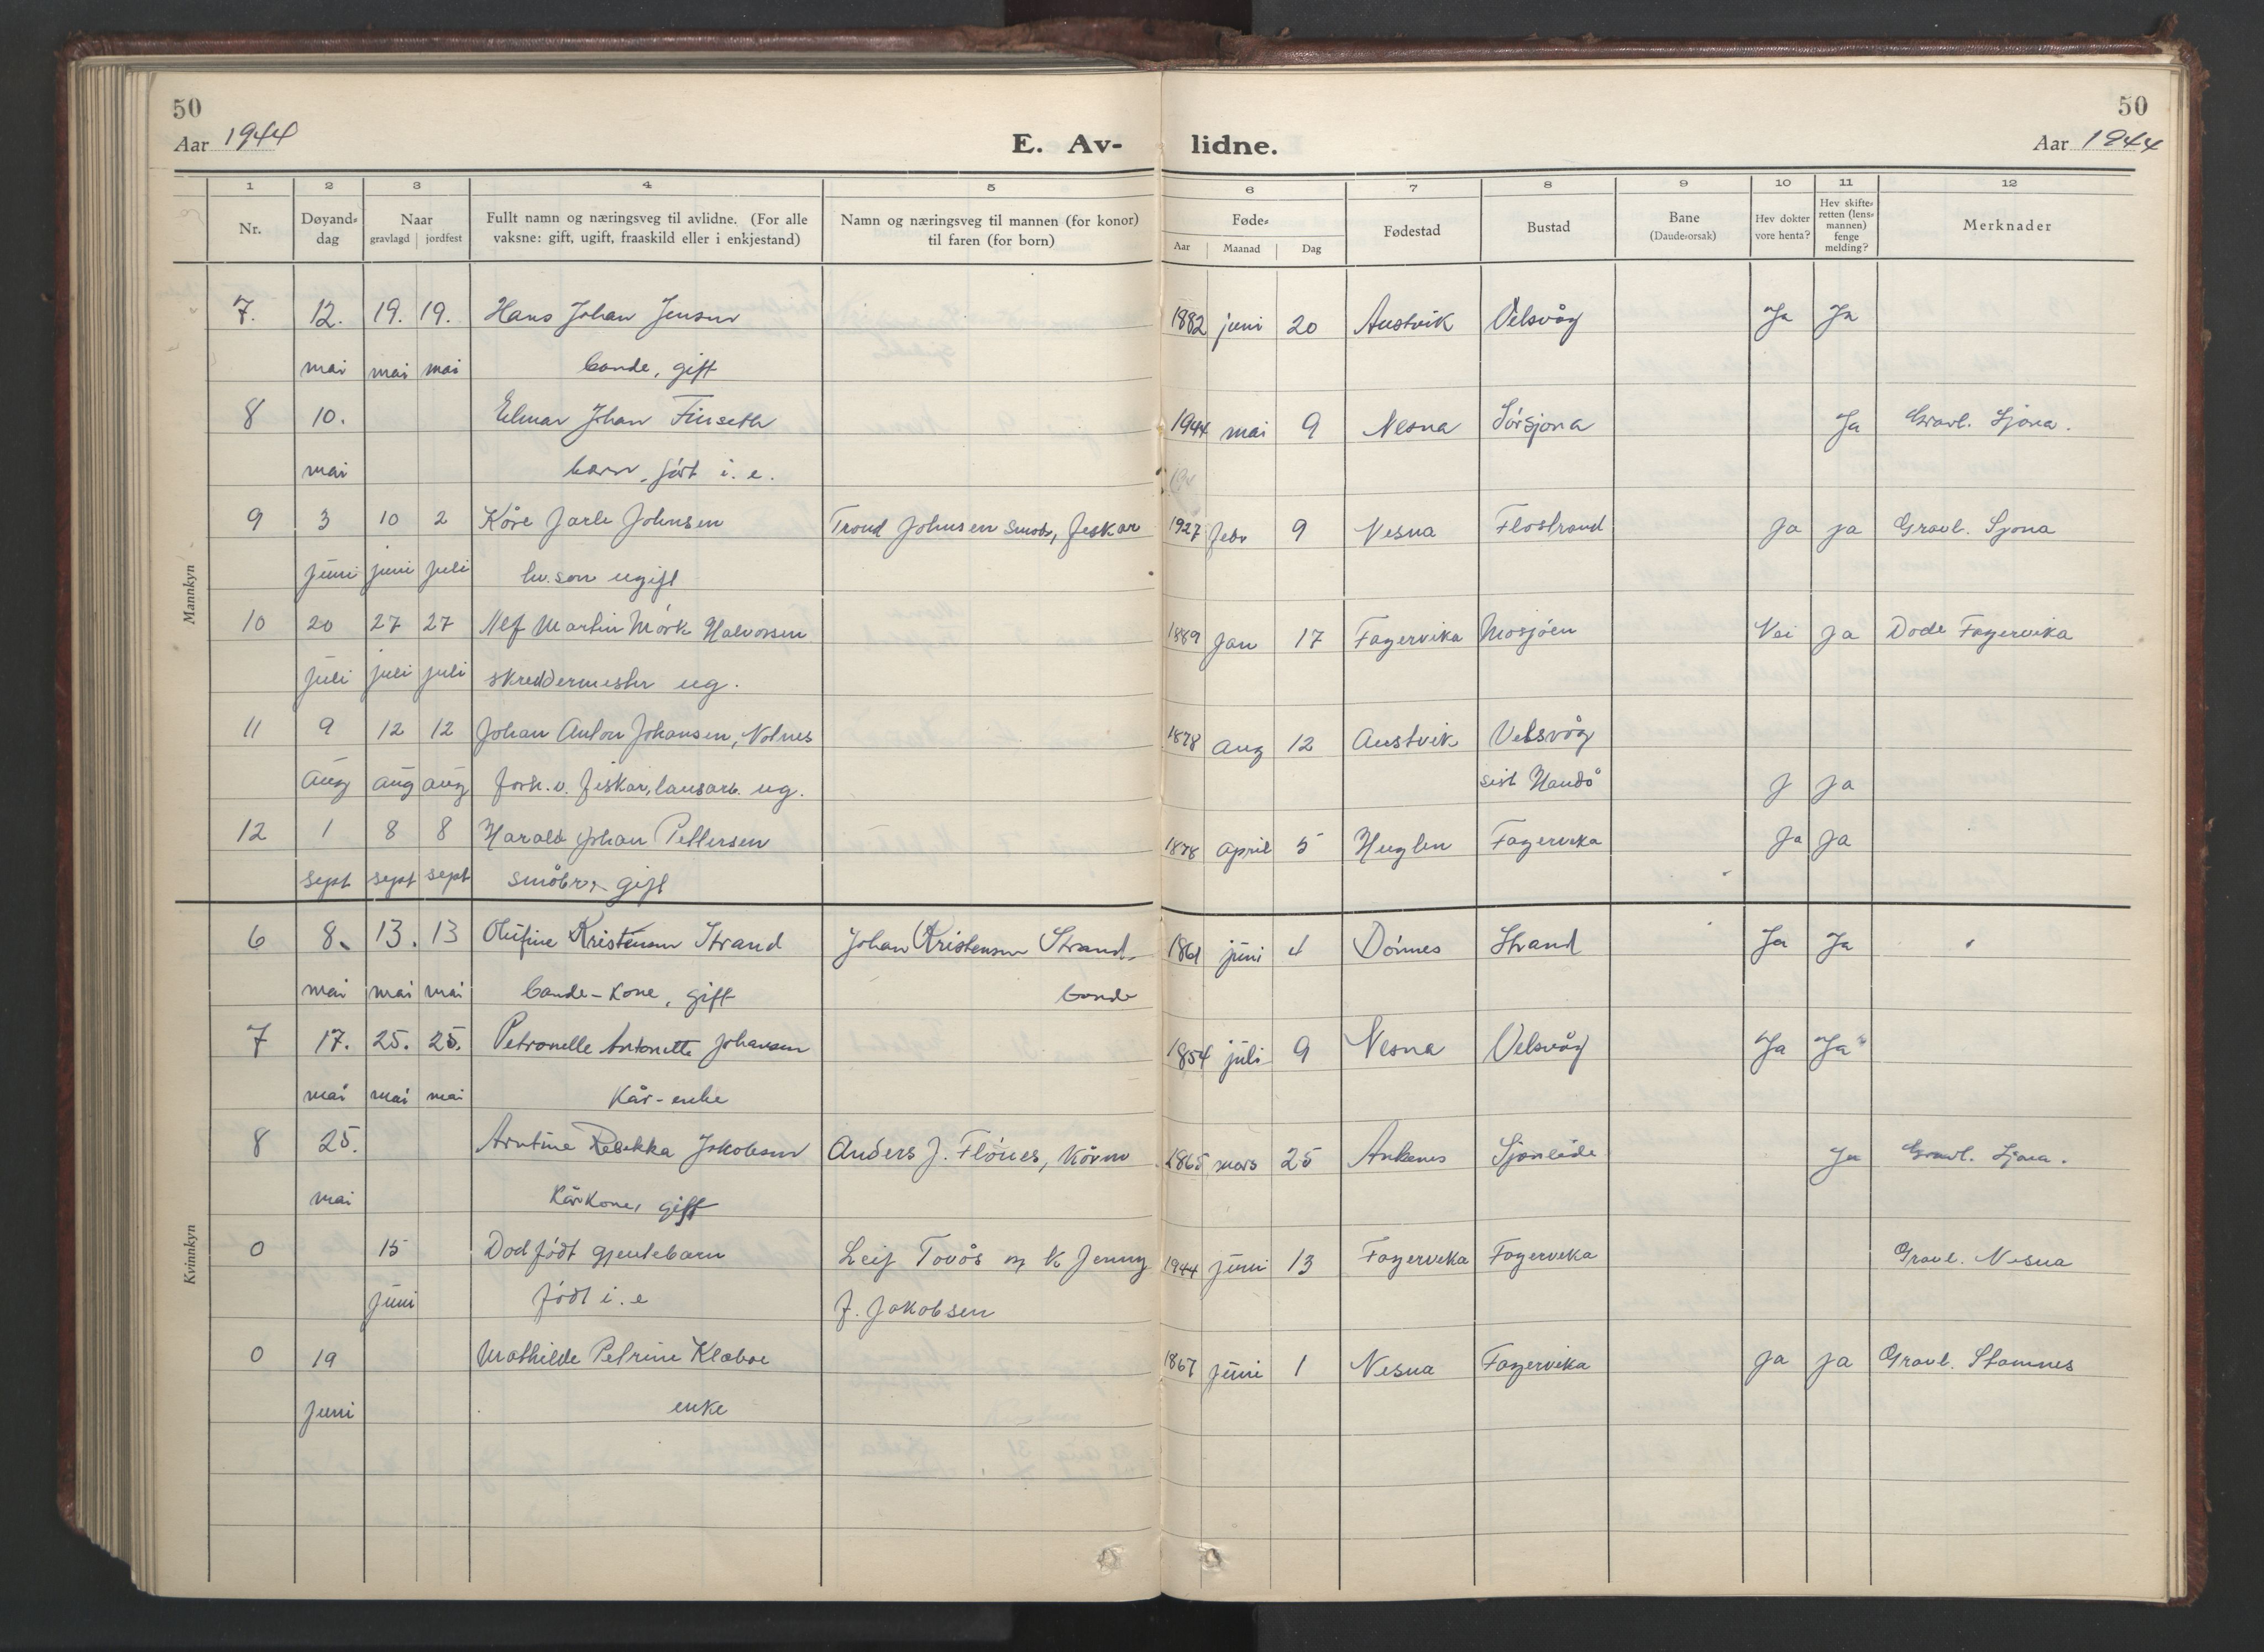 50
50
Aar 1944
E. Av-
lidne.
Aar 1944
1 2 3 4 5 6 7 8 9 10 11 12
Nr.
Døyand-dag
Naar
gravlagd | jordfest
Fullt namn og næringsveg til avlidne. (For alle
vaksne: gift, ugift, fraaskild eller i enkjestand)
Namn og næringsveg til mannen (for konor)
til faren (for born)
Føde-
Aar | Maanad | Dag
Fødestad
Bustad
Bane
(Daude-orsak)
Hev dokter
vore henta?
Hev skifte-
retten (lens-
mannen)
fenge
melding?
Merknader
Mannkyn
7. 12. 19. 19. Hans Johan Jensen 1882 juni 20 Austvik Velsvåg Ja Ja
mai mai mai bonde, gift
8 10. Elmar Johan Finseth 1944 mai 9 Nesna Sörsjona Ja Gravl. Sjona.
mai barn, født i. e.
9 3 10 2 Kåre Jarle Johnsen Trond Johnsen småbr, fiskar 1927 febr 9 Nesna Flostrand Ja ja Gravl. Sjona
juni juni juli hv. son ugift
10 20 27 27 Alf Martin Mörk Halvorsen 1889 Jan 17 Fagervika Mosjöen Nei ja Döde Fagervika
Juli juli juli skreddermester ug.
11 9 12 12 Johan Anton Johansen, Nolnes 1878 Aug 12 Austvik Velsvåg
Aug aug aug forh. v. fiskar, lausarb. ug. sist Handö J ja
12 1 8 8 Harald Johan Pettersen 1878 April 5 Huglen Fagervika Ja ja
sept sept sept småbr, gift
Kvinnkyn
6 8. 13. 13 Olufine Kristensen Strand Johan Kristensen Strand 1861 juni 4 Dönnes Strand Ja Ja
mai mai mai bonde-kone, gift bonde
7 17. 25. 25. Petronelle Antonette Johansen 1854 juli 9 Nesna Velsvåg Ja Ja
mai mai mai Kår-enke
8 25. Arntine Rebekka Jakobsen Anders J. Flönes, Kårm 1865 mars 25 Ankenes Sjonleide Ja Gravl. Sjona.
mai Kårkone, gift
0 15 Dodfödt gjentebarn Leif Tovås og k Jenny 1944 juni 13 Fagervika Fagervika Gravl. Nesna
juni födt i. e J. Jakobsen
0 19 Mathilde Petrine Klæboe 1867 juni 1 Nesna Fagervika Ja ja Gravl. Stamnes
Juni enke